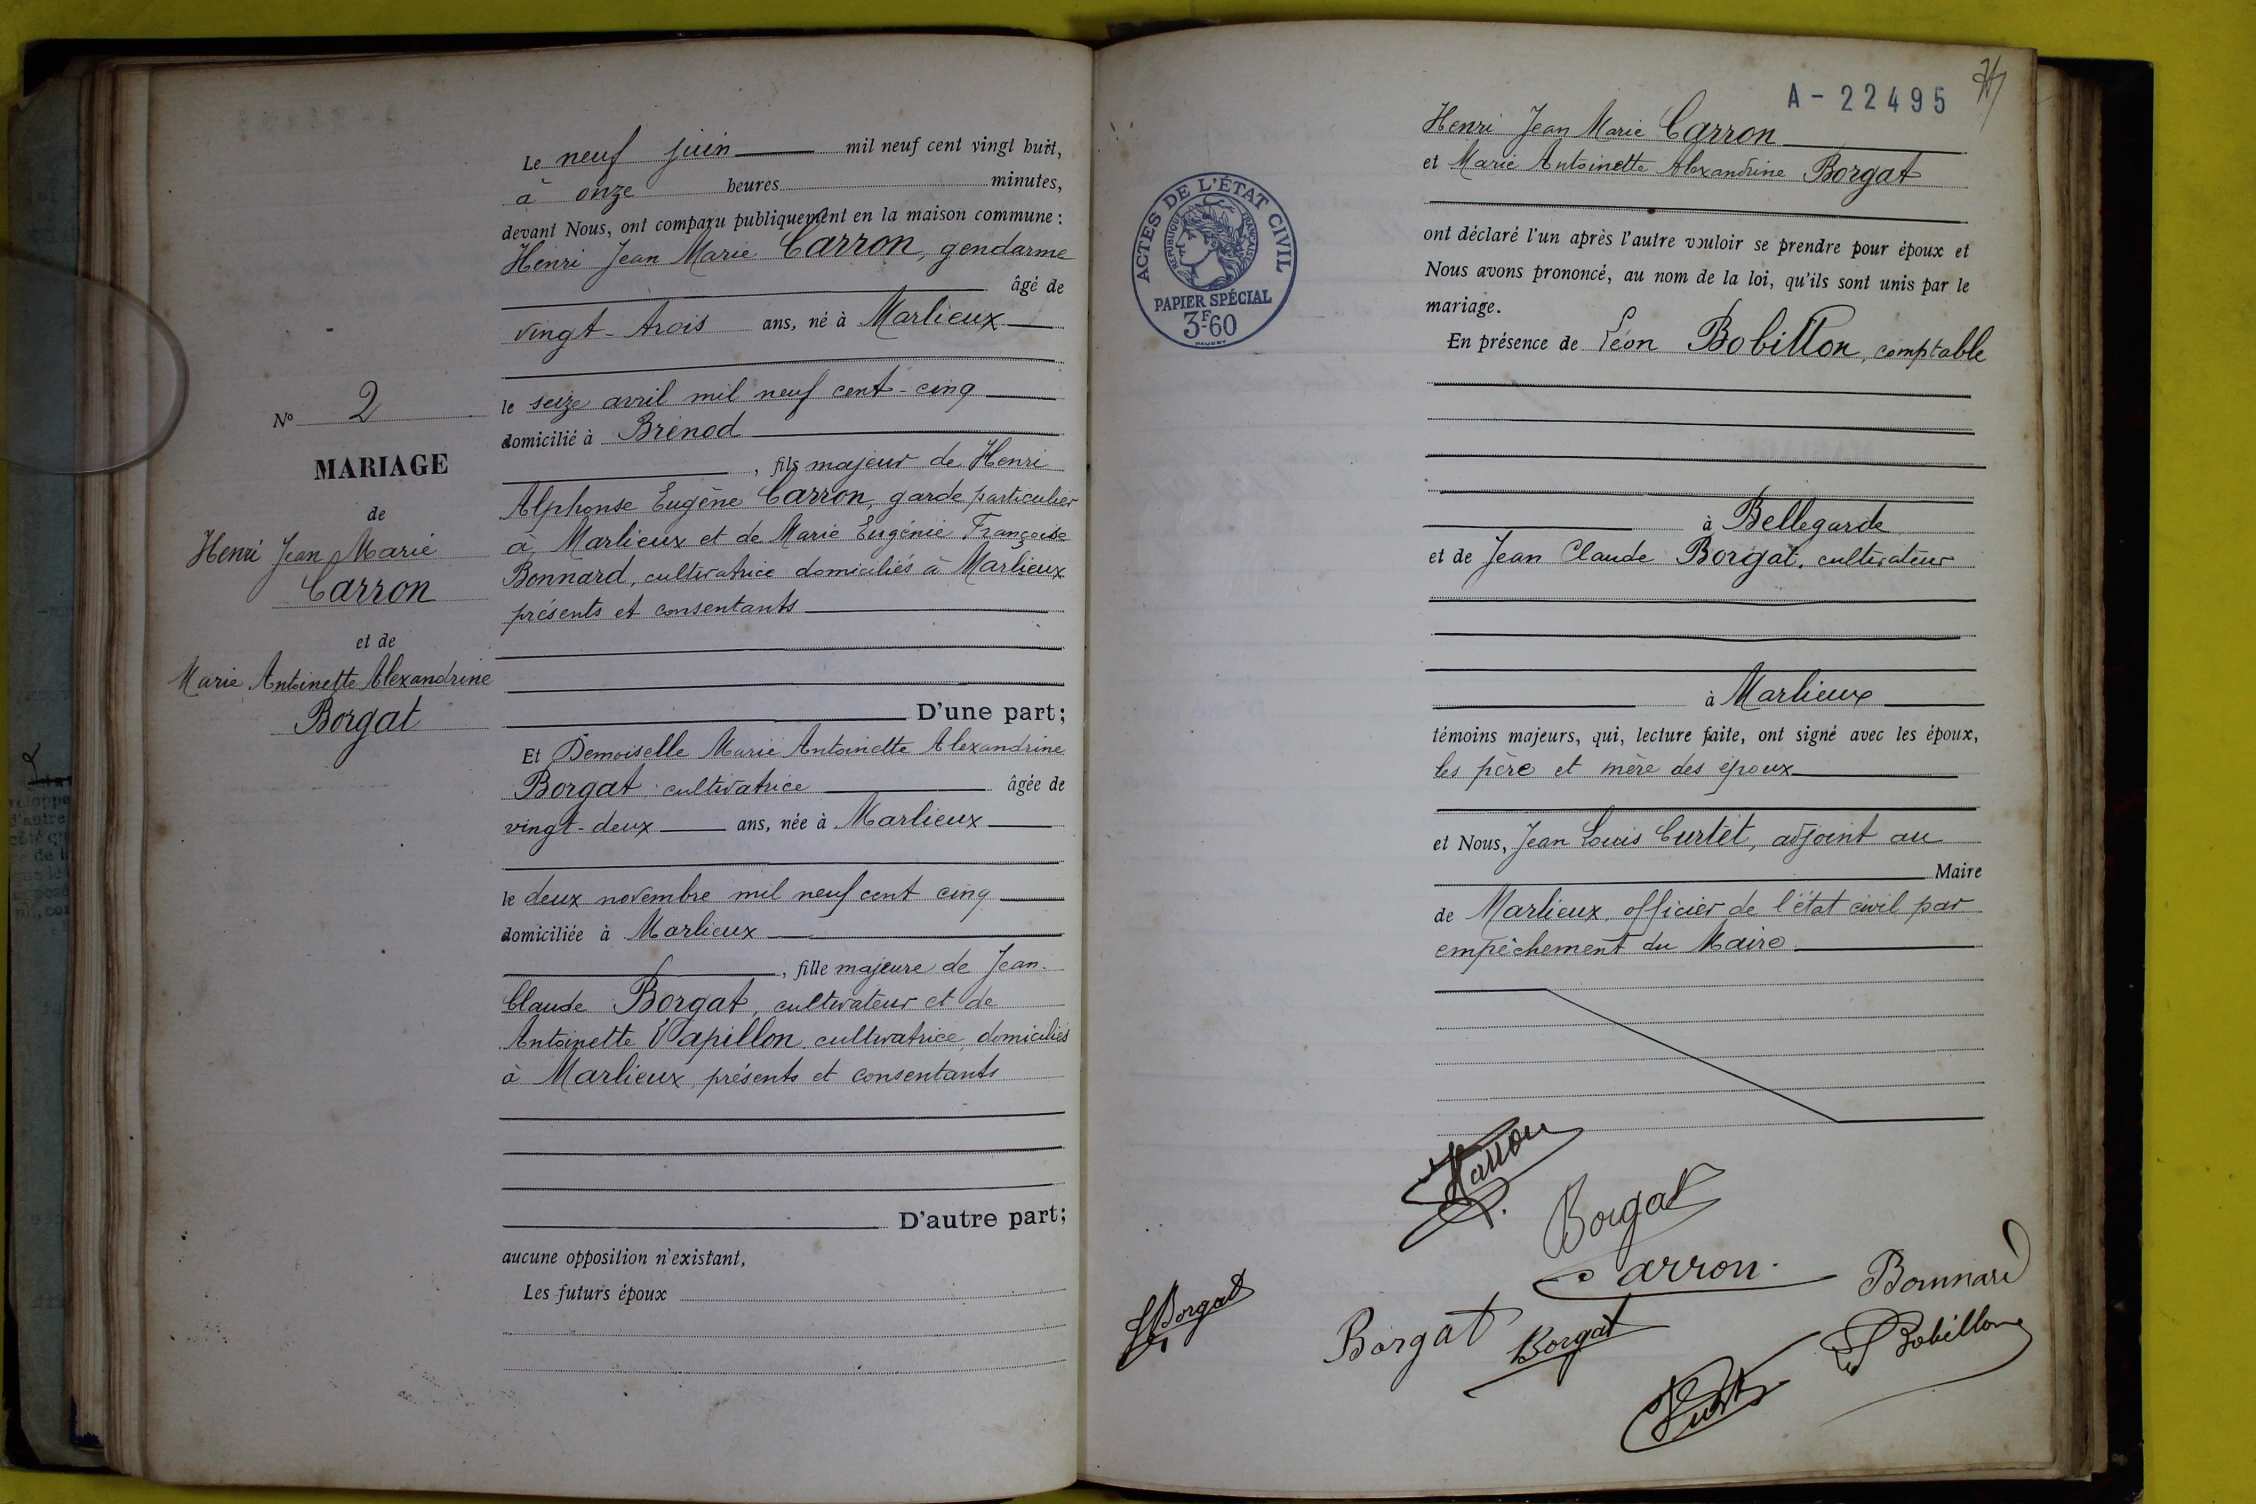 Le neuf juin mil neuf cent vingt huit,
à onze heures minutes,
devant Nous, ont comparu publiquement en la maison commune :
Henri Jean Marie Carron, gendarme
âgé de
vingt-trois ans, né à Marlieux
le seize avril mil neuf cent-cinq
domicilié à Brénod
, fils majeur de Henri
Alphonse Eugène Carron, garde particulier
à Marlieux et de Marie Eugénie Françoise
Bonnard, cultivatrice domiciliés à Marlieux
présents et consentants
D'une part;
Et Demoiselle Marie Antoinette Alexandrine
Borgat cultivatrice âgée de
vingt-deux ans, née à Marlieux
le deux novembre mil neuf cent cinq
domiciliée à Marlieux
, fille majeure de Jean-
Claude Borgat, cultivateur et de
Antoinette Papillon cultivatrice, domiciliés
à Marlieux, présents et consentants
D'autre part;
aucune opposition n'existant,
Les futurs époux
N° 2
MARIAGE
de
Henri Jean Marie
Carron
et de
Marie Antoinette Alexandrine
Borgat
A-22495
Henri Jean Marie Carron
et Marie Antoinette Alexandrine Borgat
ont déclaré l'un après l'autre vouloir se prendre pour époux et
Nous avons prononcé, au nom de la loi, qu'ils sont unis par le
mariage.
En présence de Léon Bobillon, comptable
à Bellegarde
et de Jean Claude Borgat, cultivateur
à Marlieux
témoins majeurs, qui, lecture faite, ont signé avec les époux,
les père et mère des époux
et Nous, Jean Louis Curtet, adjoint au
Maire
de Marlieux, officier de l'état civil par
empêchement du Maire
ACTES DE L'ÉTAT CIVIL
RÉPUBLIQUE FRANÇAISE
PAPIER SPÉCIAL
3F60
Carron
Borgat
Carron
Bonnard
Borgat
Borgat
Borgat
Bobillon